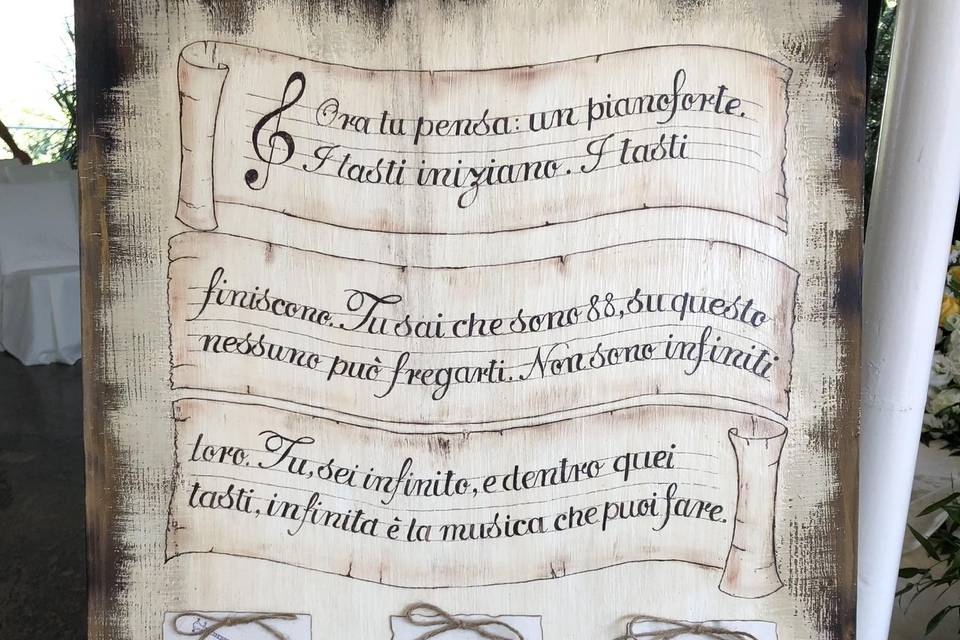 Ora tu pensa: un pianoforte.
I tasti iniziano. I tasti
finiscono. Tu sai che sono 88, su questo
nessuno può fregarti. Non sono infiniti
loro. Tu, sei infinito, e dentro quei
tasti, infinita è la musica che puoi fare.